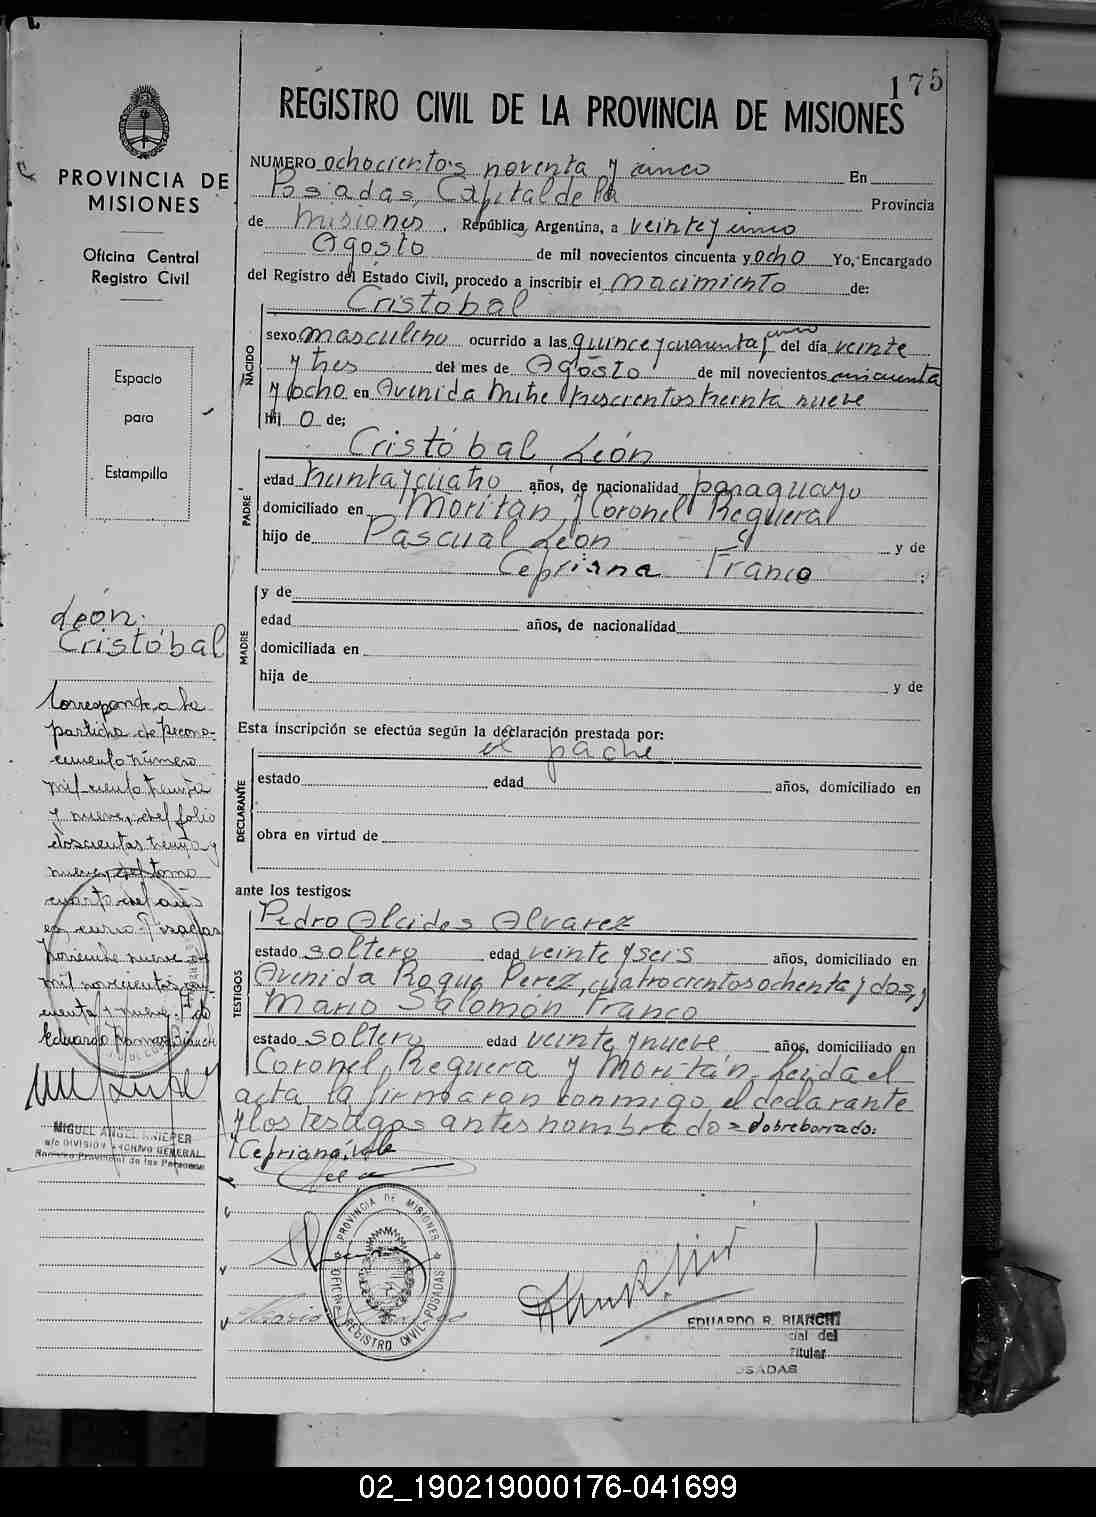 175
REGISTRO CIVIL DE LA PROVINCIA DE MISIONES
PROVINCIA DE
MISIONES
Oficina Central
Registro Civil
Espacio
para
Estampilla
NUMERO ochocientos noventa y cinco En
Posadas, Capital de la Provincia
de Misiones, República Argentina, a veinte y cinco
Agosto de mil novecientos cincuenta y ocho Yo, Encargado
del Registro del Estado Civil, procedo a inscribir el nacimiento de:
Cristóbal
NACIDO
sexo masculino ocurrido a las quince y cuarenta y cinco del día veinte
y tres del mes de Agosto de mil novecientos cincuenta
y ocho en Avenida Mitre trescientos treinta nueve
hijo de;
Cristóbal León
PADRE
edad treinta y cuatro años, de nacionalidad paraguayo
domiciliado en Moritán y Coronel Reguera
hijo de Pascual León y de
Cepriana Franco
MADRE
y de
edad años, de nacionalidad
domiciliada en
hija de y de
León
Cristóbal
Corresponde a la
partida de recono-
cimiento número
mil ciento treinta
y nueve, del folio
doscientos treinta y
nueve, del tomo
cuarto del año
en curso. Posadas
noviembre nueve de
mil novecientos cin-
cuenta y nueve. Fdo
Eduardo Ramon Bianchi
MIGUEL ANGEL KNIEPER
a/c DIVISION ARCHIVO GENERAL
Registro Provincial de las Personas
Esta inscripción se efectúa según la declaración prestada por:
el padre
DECLARANTE
estado edad años, domiciliado en
obra en virtud de
ante los testigos:
TESTIGOS
Pedro Alcides Alvarez
estado soltero edad veinte y seis años, domiciliado en
Avenida Roque Perez, cuatrocientos ochenta y dos, y
Mario Salomón Franco
estado soltero edad veinte y nueve años, domiciliado en
Coronel Reguera y Moritán. Leida el
acta la firmaron conmigo, el declarante
y los testigos antes nombrados = Sobreborrado:
y Cepriana, vale
PROVINCIA DE MISIONES
OFICINA REGISTRO CIVIL - POSADAS
EDUARDO R. BIANCHI
cial del
Titular
OSADAS
02_190219000176-041699